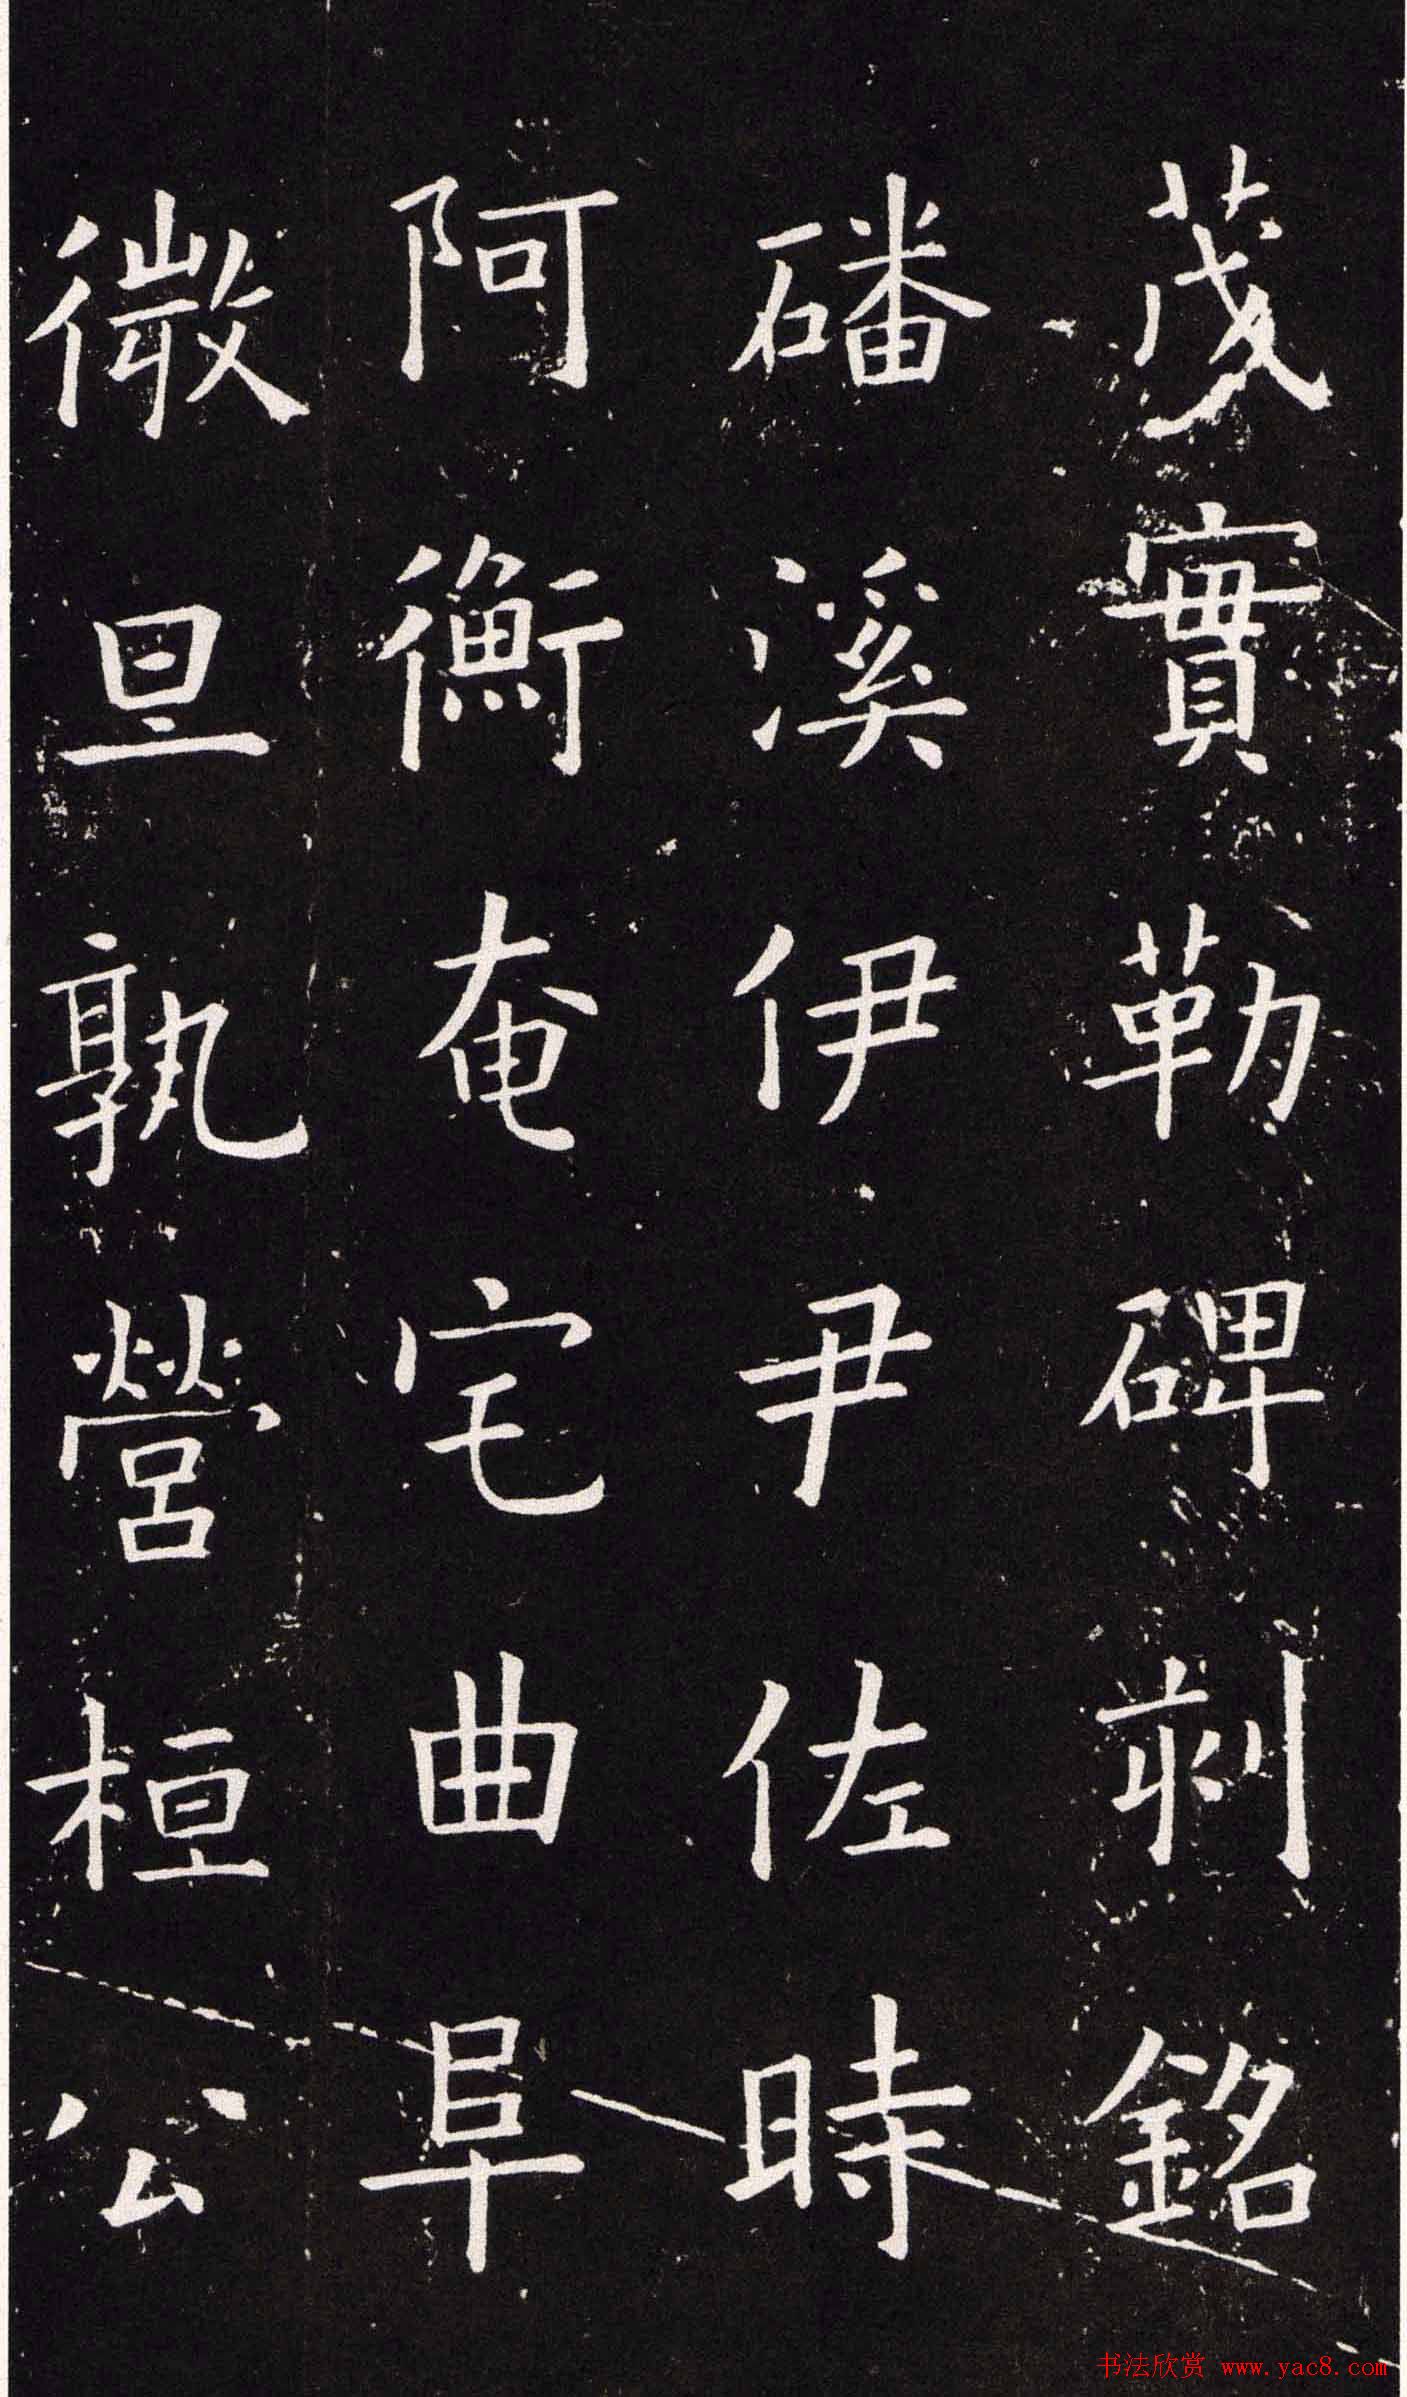 茂實勒碑刻銘
磻溪伊尹佐時
阿衡奄宅曲阜
微旦孰營桓公
书法欣赏 www.yac8.com